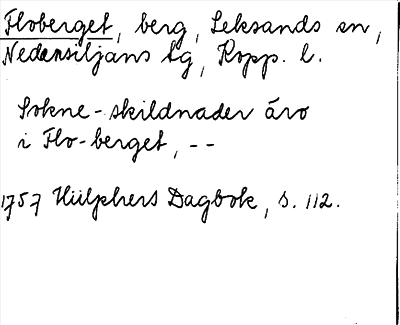 Floberget, berg, Leksands sn,
Nedansiljans tg, Kopp. l.
Sokne-skildnader äro
i Flo-berget, --
1757 Hülphers Dagbok, s. 112.